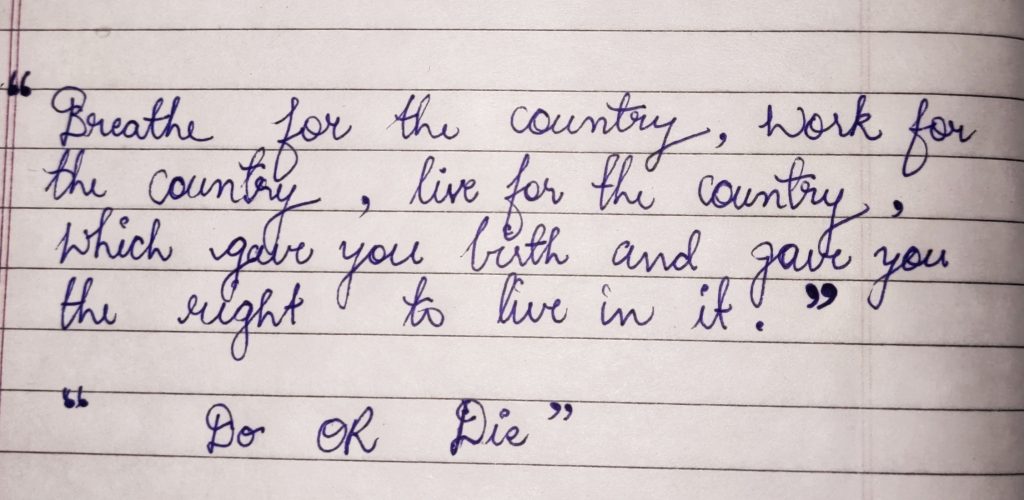 “Breathe for the country, Work for
the country, live for the country,
Which gave you birth and gave you
the right to live in it.”
“Do OR Die”